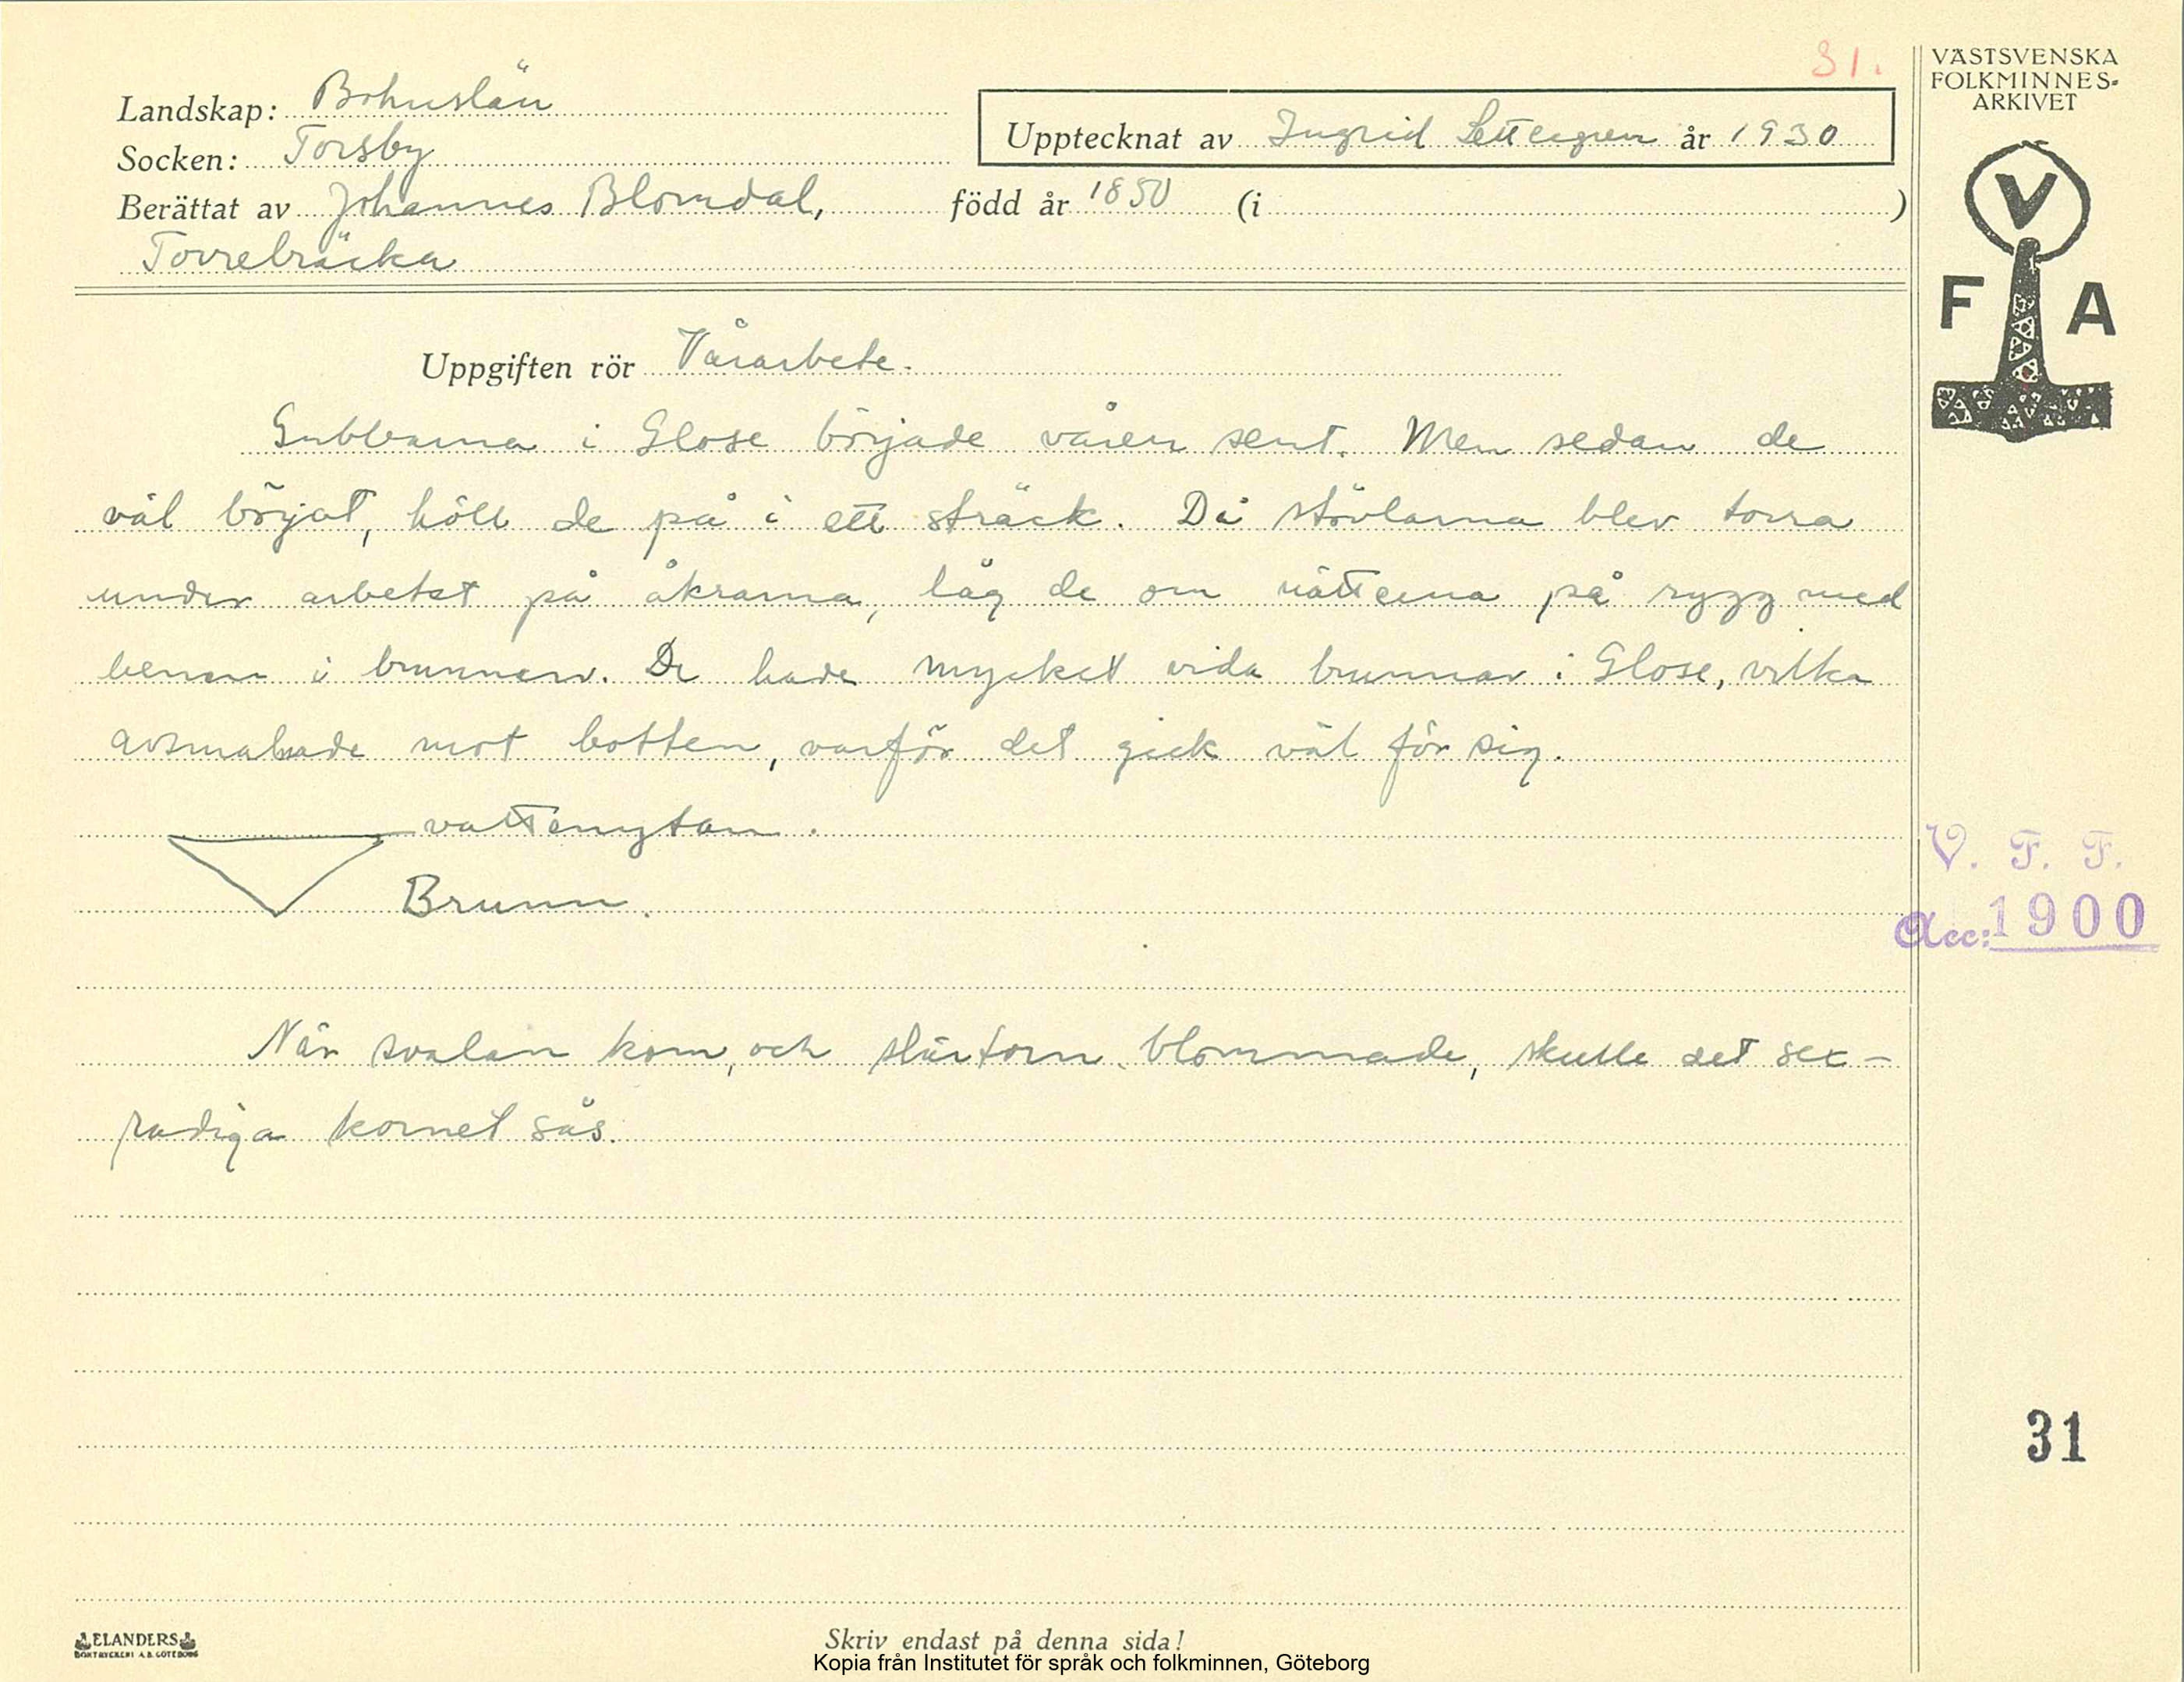 31.
VÄSTSVENSKA
FOLKMINNES-
ARKIVET
Landskap: Bohuslän
Upptecknat av Ingrid Settergren år 1930
Socken: Torsby
Berättat av Johannes Blomdal, född år 1850 (i )
Torrebräcka
V
F A
Uppgiften rör Vårarbete.
Gubbarna i Glose började våren sent. Men sedan de
väl börjat, höll de på i ett sträck. Då stövlarna blev torra
under arbetet på åkrarna, låg de om nätterna på rygg med
benen i brunnen. De hade mycket vida brunnar i Glose, vilka
avsmalnade mot botten, varför det gick väl för sig.
vattenytan.
Brunn.
V. F. F.
Acc: 1900
När svalan kom, och slåntorn blommade, skulle det sex-
radiga kornet sås.
31
ELANDERS
BOKTRYCKERI A.B. GÖTEBORG
Skriv endast på denna sida!
Kopia från Institutet för språk och folkminnen, Göteborg